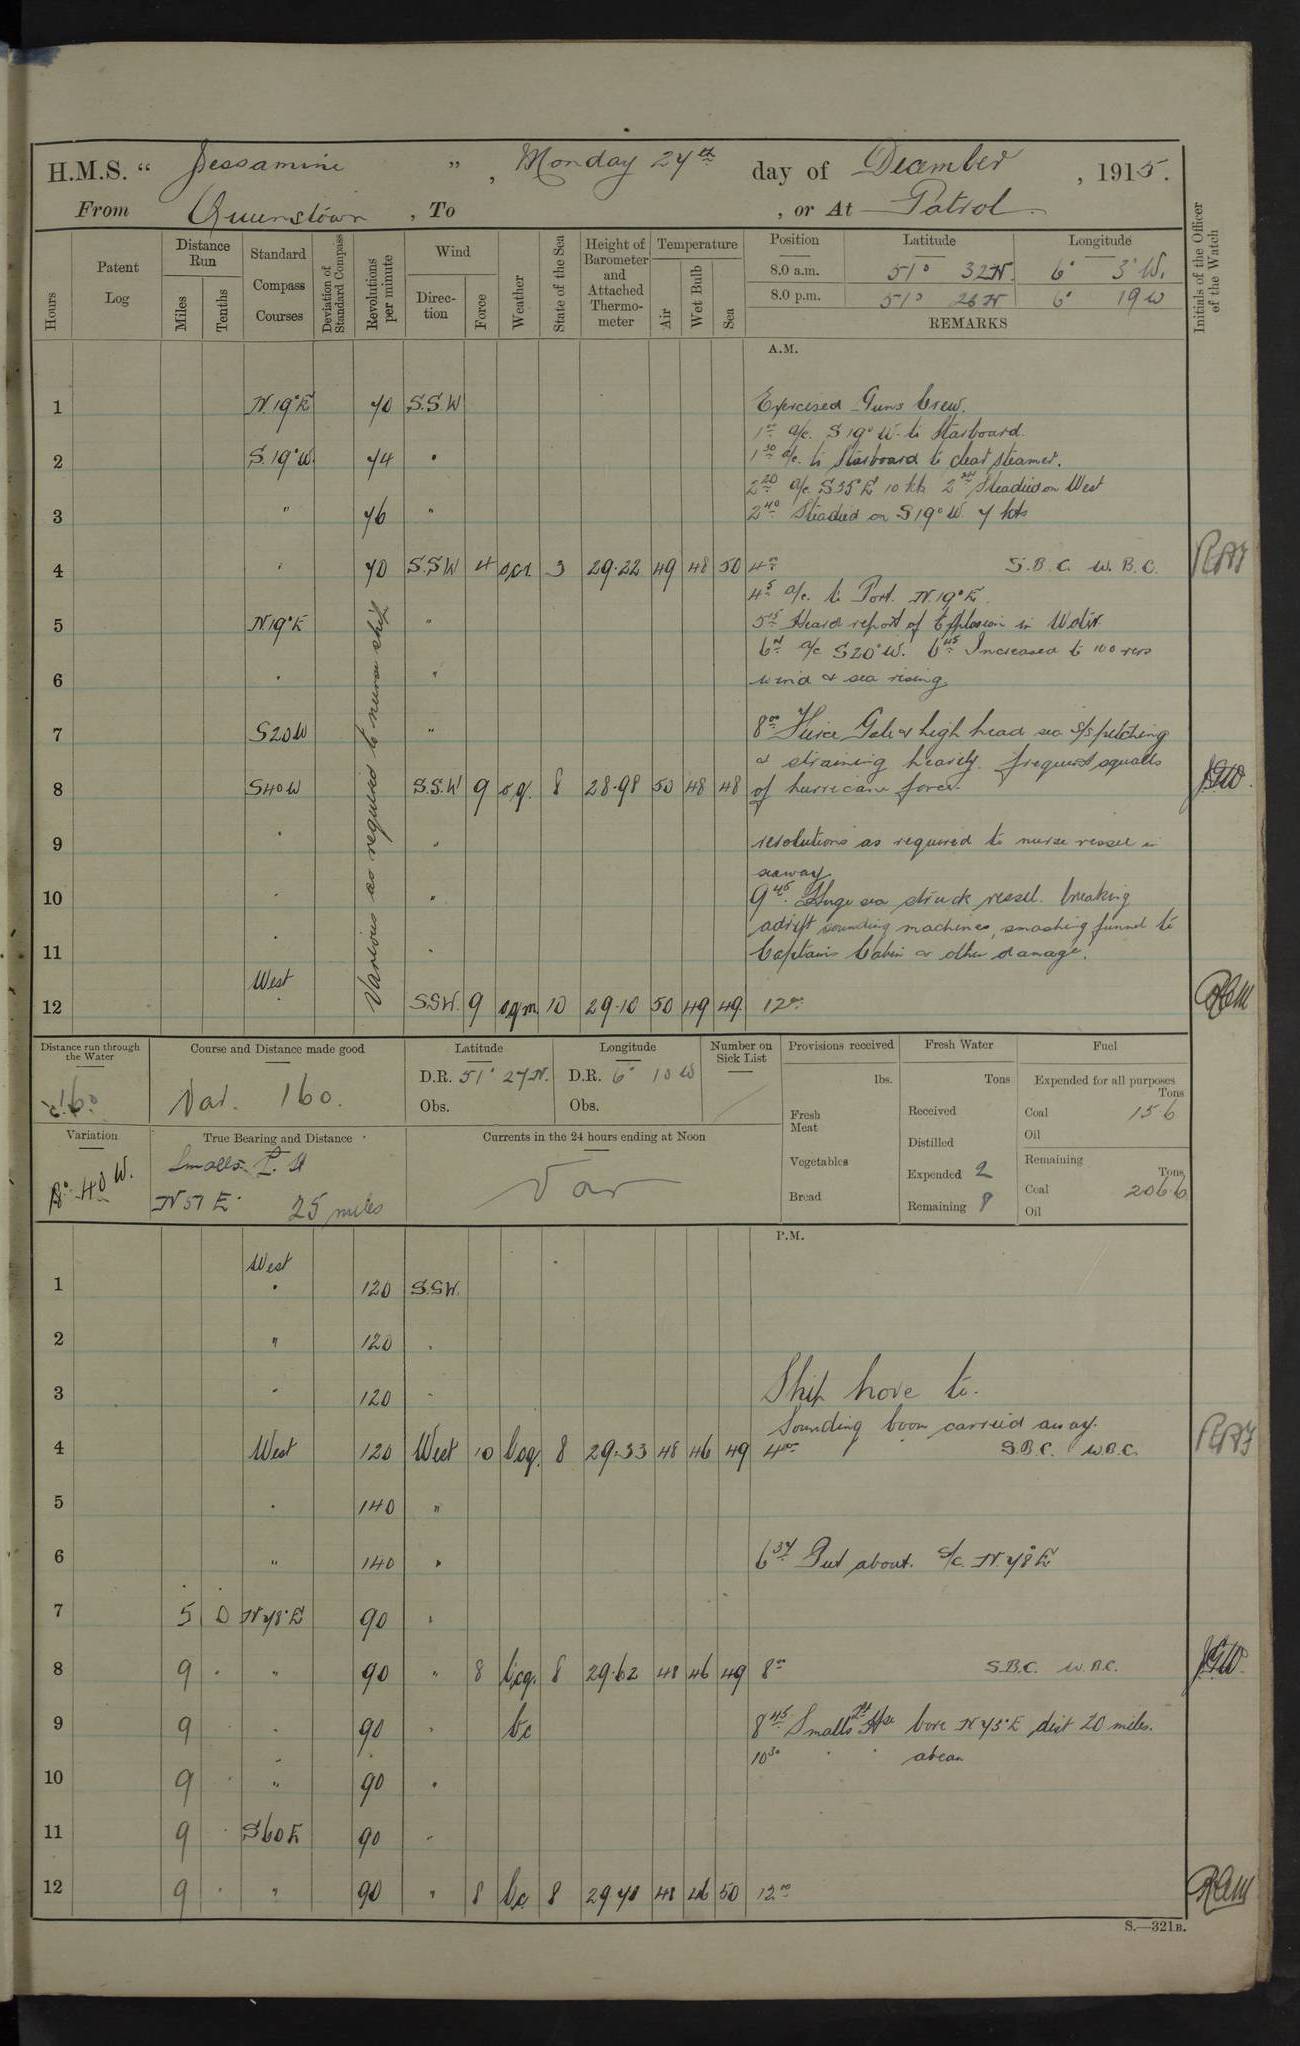 H.M.S. " Jessamine ", Monday 24th day of December, 1915.
From Queenstown, To , or At Patrol.
Hours Patent Log Distance Run Miles Tenths Standard Compass Courses Deviation of Standard Compass Revolutions per minute Wind Direction Force Weather State of the Sea Height of Barometer and Attached Thermometer Temperature Air Wet Bulb Sea Position Latitude Longitude Initials of the Officer of the Watch
8.0 a.m. 51° 32N. 6° 3' W.
8.0 p.m. 51° 26 N 6° 19 W
REMARKS
A.M.
1 N.19°E 70 S.S.W Exercised Guns Crew.
1 a/c. S 19° W. to Starboard.
2 S.19°W. 74 " 1 30 a/c. to Starboard to clear steamer.
2 20 a/c S35°E 10 kts Steadied on West
3 " 76 " 2 40 Steadied on S19°W. 7 kts
4 " 70 S.S.W 4 o.c.r. 3 29.22 49 48 50 4 00 S.B.C. W.B.C.
4 5 a/c. to Port. N.19°E.
5 N19°E " 5 15 Heard report of Explosion in
6 a/c S20°W. 6 45 Increased to 100 revs
6 " " wind & sea rising.
7 S20W " 8 00 Fierce Gale & high head sea s/s pitching
& straining heavily. frequent squalls
8 S40W S.S.W 9 o.q. 8 28.98 50 48 48 of hurricane force.
9 " " revolutions as required to nurse vessel in
seaway
10 " " 9 45 Huge sea struck vessel. breaking
adrift sounding machines, smashing funnel to
11 " " Captains Cabin & other damage.
West
12 S.S.W. 9 o.q.m. 10 29.10 50 49 49. 12 00
Various as required to nurse ship
Distance run through the Water Course and Distance made good Latitude Longitude Number on Sick List Provisions received Fresh Water Fuel
160 Var. 160. D.R. 51° 27 N. D.R. 6° 10 W lbs. Tons Expended for all purposes Tons
Obs. Obs. Fresh Meat Received Coal 15.6
Oil
Variation True Bearing and Distance Currents in the 24 hours ending at Noon Distilled
Smalls Vegetables Expended 2 Remaining Tons
40 W. N 57 E. 25 miles Var Bread Remaining 8 Coal 206.6
Oil
P.M.
West
1 " 120 S.S.W.
2 " 120 "
3 " 120 " Ship hove to.
Sounding boom carried away.
4 West 120 West 10 b.c.q. 8 29.33 48 46 49 4 00 S.B.C. W.B.C.
5 " 140 "
6 " 140 " 6 37 Put about. a/c. N.78°E
7 5 0 N78°E 90 "
8 9 . " 90 " 8 b.c.q. 8 29.62 48 46 49 8 00 S.B.C. W.B.C.
9 9 . 90 " bc 8 45 Smalls Lt Hse bore N73°E dist 20 miles.
10 30 " " abeam
10 9 . " 90 "
11 9 . S60E 90 "
12 9 . " 90 " 8 bc 8 29.70 48 46 50 12 00
S.—321B.